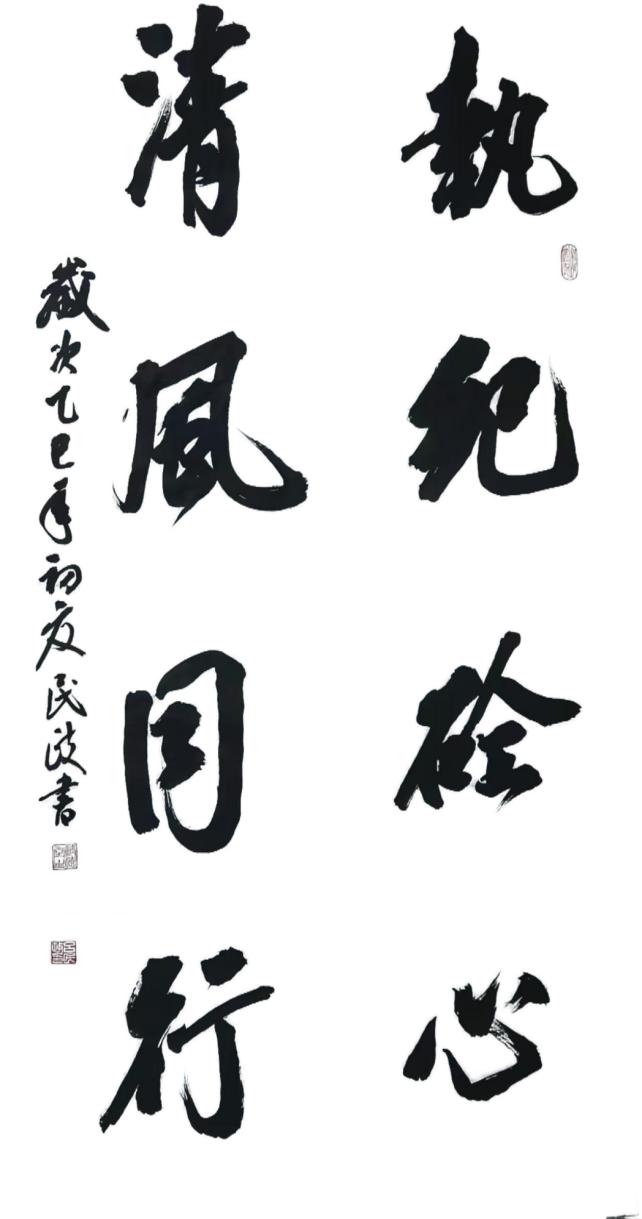 執紀心
清風同行
歲次乙巳年初夏民波書